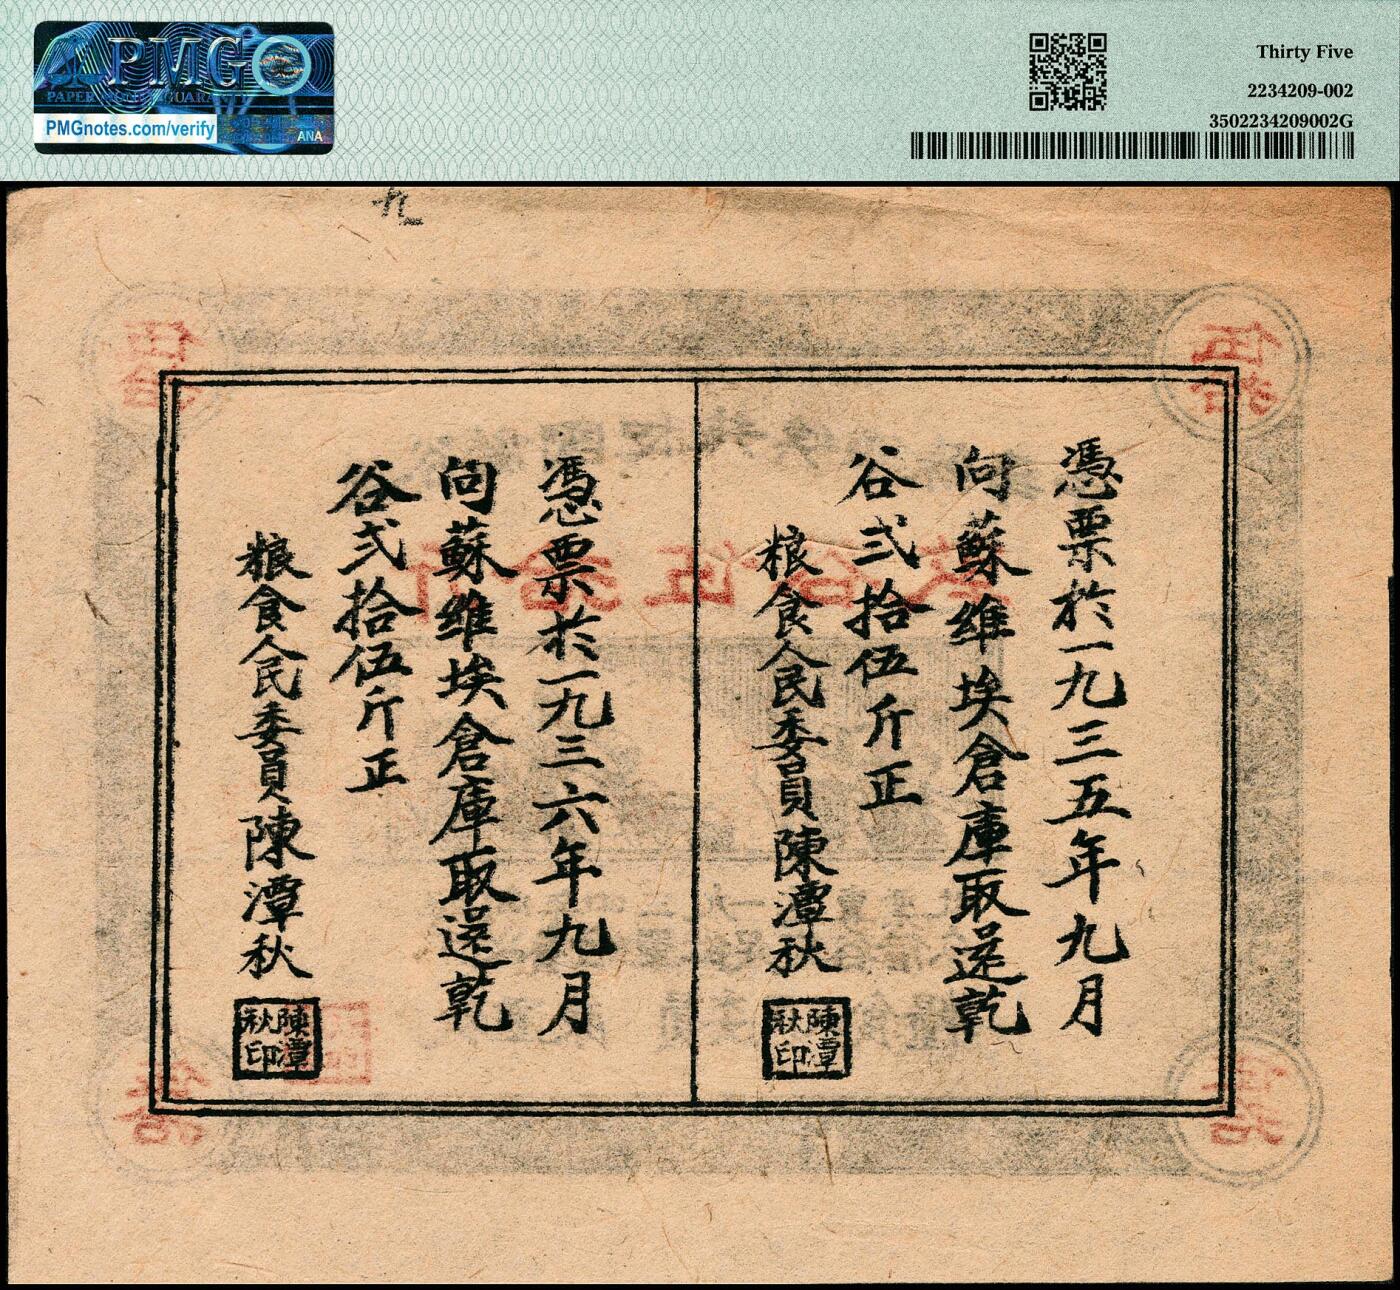 PMG
PAPER MONEY GUARANTY
PMGnotes.com/verify
ANA
Thirty Five
2234209-002
3502234209002G
九
憑票於一九三五年九月
向蘇維埃倉庫取还乾
谷弍拾伍斤正
粮食人民委員陳潭秋
陳潭秋印
憑票於一九三六年九月
向蘇維埃倉庫取还乾
谷弍拾伍斤正
粮食人民委員陳潭秋
陳潭秋印
伍拾
伍拾